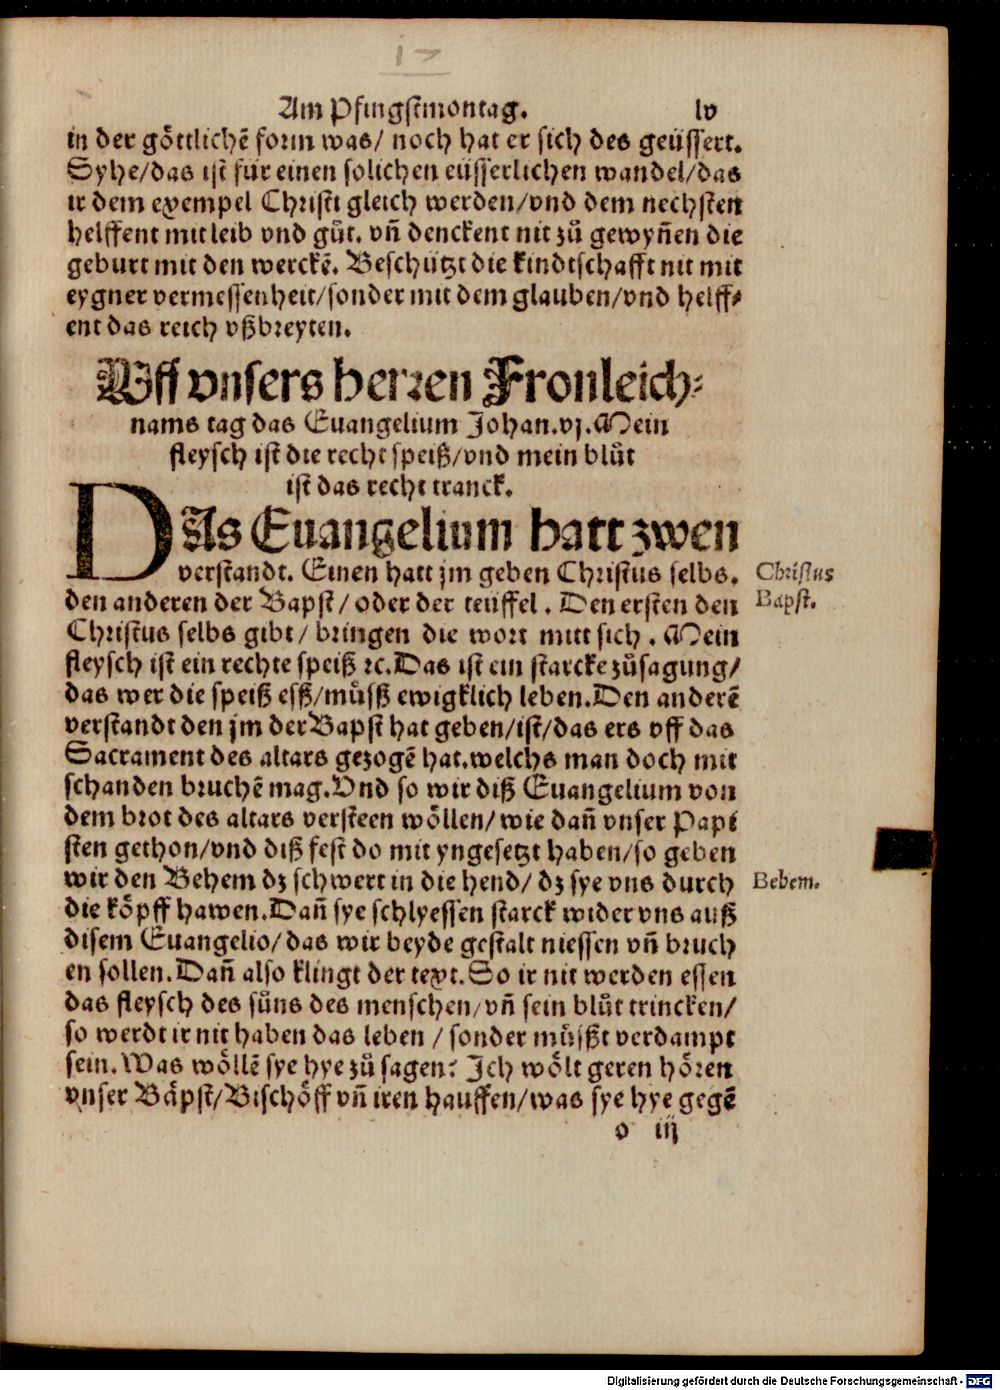 Am Pfingstmontag. lv
in der göttlichē form was/ noch hat er sich des geüssert.
Syhe/das ist für einen solichen eüsserlichen wandel/das
ir dem exempel Christi gleich werden/vnd dem nechsten
helffent mit leib vnd gůt. vñ denckent nit zů gewyñen die
geburt mit den werckē. Beschützt die kindtschafft nit mit
eygner vermessenheit/sonder mit dem glauben/vnd helff⸗
ent das reich vßbreyten.
Vff vnsers herren Fronleich⸗
nams tag das Euangelium Johan.vj.Mein
fleysch ist die recht speiß/vnd mein blůt
ist das recht tranck.
DAs Euangelium hatt zwen
verstandt. Einen hatt jm geben Christus selbs.
Christus
den anderen der Bapst/ oder der teüffel. Den ersten den
Bapst.
Christus selbs gibt/ bringen die wort mitt sich. Mein
fleysch ist ein rechte speiß ꝛc.Das ist ein starcke zůsagung/
das wer die speiß esß/můsß ewigklich leben.Den anderē
verstandt den jm der Bapst hat geben/ist/das ers vff das
Sacrament des altars gezogē hat.welchs man doch mit
schanden bruchē mag.Vnd so wir diß Euangelium von
dem brot des altars versteen wöllen/ wie dañ vnser Papi
sten gethon/vnd diß fest do mit yngesetzt haben/so geben
wir den Behem dz schwert in die hend/ dz sye vns durch
Behem.
die köpff hawen.Dañ sye schlyessen starck wider vns auß
disem Euangelio/das wir beyde gestalt niessen vñ bruch
en sollen.Dañ also klingt der text.So ir nit werden essen
das fleysch des sůns des menschen/vñ sein blůt trincken/
so werdt ir nit haben das leben / sonder můsßt verdampt
sein.Was wöllē sye hye zů sagen? Ich wölt geren hören
vnser Bäpst/Bischöff vñ iren hauffen/was sye hye gegē
o iij
Digitalisierung gefördert durch die Deutsche Forschungsgemeinschaft - DFG